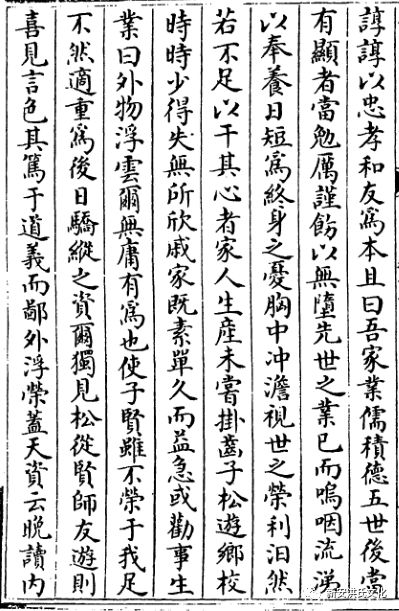 諄諄以忠孝和友爲本且曰吾家業儒積德五世後當
有顯者當勉厲謹飭以無墮先世之業已而嗚咽流涕
以奉養日短爲終身之憂胸中冲澹視世之榮利泊然
若不足以干其心者家人生産未嘗掛齒子松遊鄉校
時時少得失無所欣戚家既素單久而益急或勸事生
業曰外物浮雲爾無庸有爲也使子賢雖不榮于我足
不然適重爲後日驕縱之資爾獨見松從賢師友遊則
喜見言色其篤于道義而鄙外浮榮蓋天資云晚讀内
新安洪氏文化